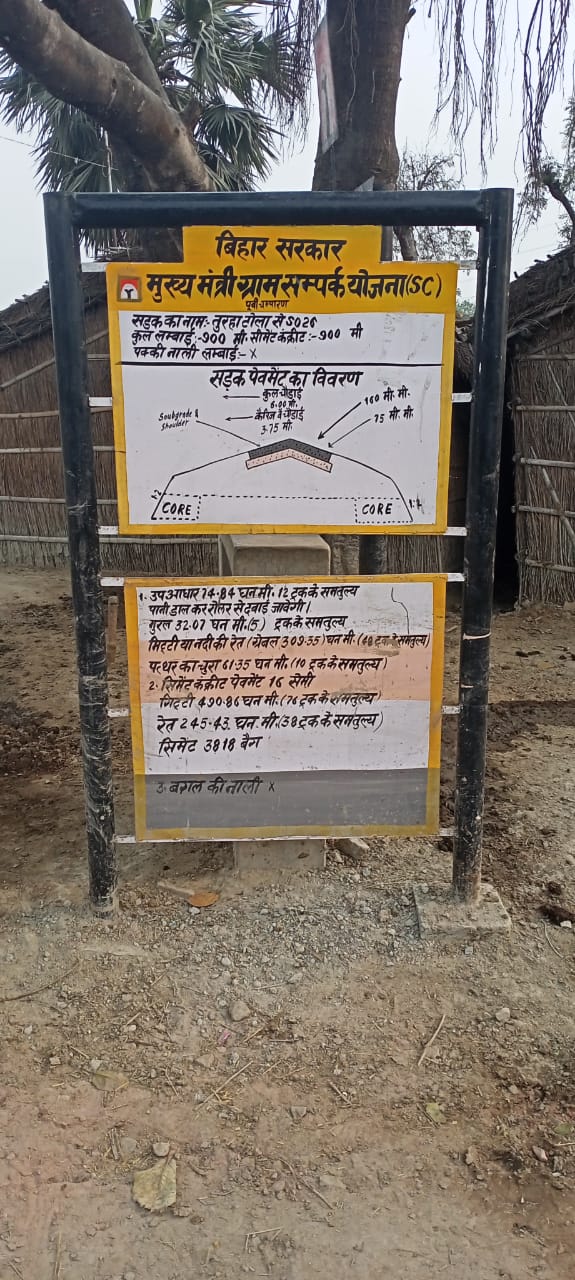 बिहार सरकार
मुख्य मंत्री ग्राम सम्पर्क योजना (SC)
पूर्वी चम्पारण
सड़क का नाम:- तुरहा टोला से S026
कुल लम्बाई:-900 मी. सीमेंट कंक्रीट:-900 मी
पक्की नाली लम्बाई:- X
सड़क पेवमेंट का विवरण
कुल चौड़ाई
6.00 मी.
कैरिज वे चौड़ाई
3.75 मी.
Soubgrade &
Shoulder
160 मी. मी.
75 मी. मी.
CORE
CORE
1. उप आधार 74.84 घन मी. 12 ट्रक के समतुल्य
पानी डाल कर रोलर से दवाई जावेगी।
गुरल 32.07 घन मी. (5) ट्रक के समतुल्य
मिट्टी या नदी की रेत (ग्रेबल 309.35) घन मी. (48 ट्रक के समतुल्य)
पत्थर का चुरा 61.35 घन मी. (10 ट्रक के समतुल्य)
2. सिमेंट कंक्रीट पेवमेंट 16 सेमी
गिट्टी 490.86 घन मी. (76 ट्रक के समतुल्य)
रेत 245.43 घन मी. (38 ट्रक के समतुल्य)
सिमेंट 3818 बैग
3. बगल की नाली X